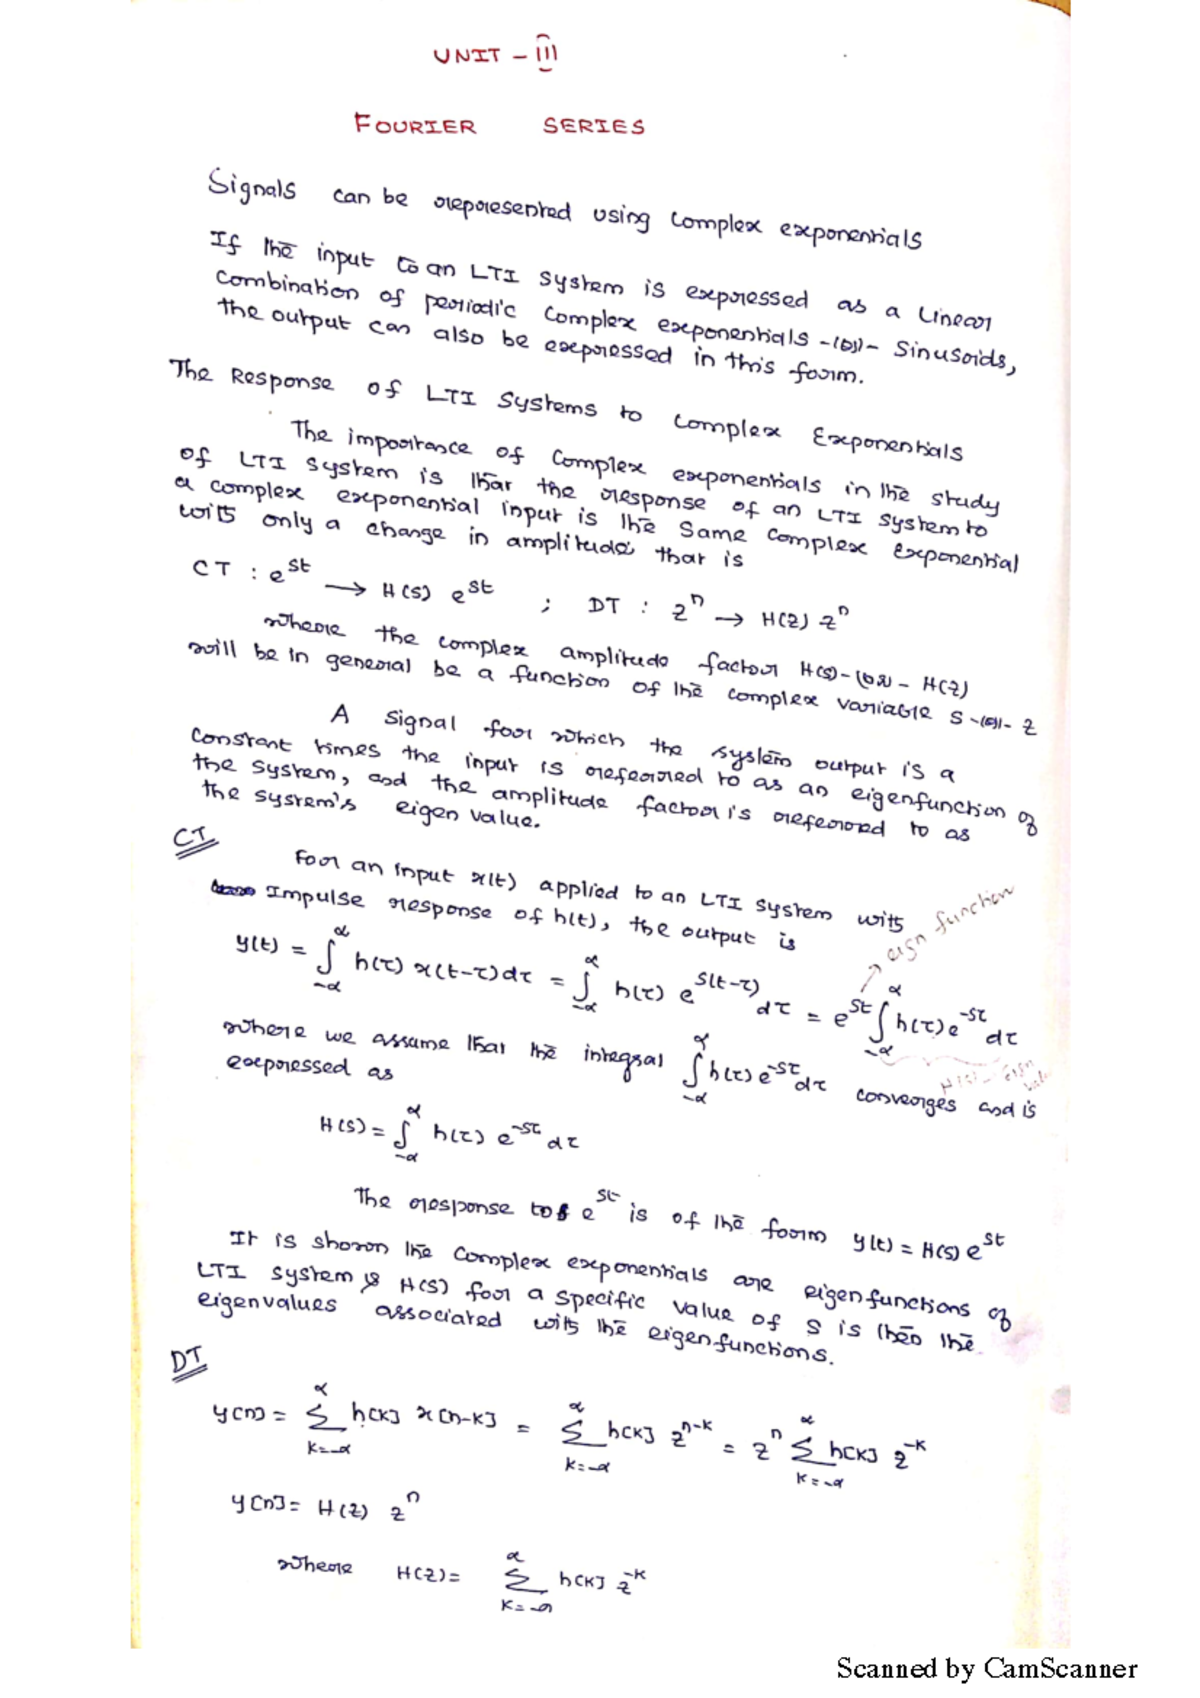 UNIT - III
FOURIER SERIES
Signals can be represented using complex exponentials
If the input to an LTI system is expressed as a Linear
combination of periodic complex exponentials -(or)- sinusoids,
the output can also be expressed in this form.
The Response of LTI Systems to Complex Exponentials
The importance of complex exponentials in the study
of LTI system is that the response of an LTI system to
a complex exponential input is the same complex exponential
with only a change in amplitude that is
CT : e^{st} → H(s) e^{st} ; DT : z^n → H(z) z^n
where the complex amplitude factor H(s) -(or)- H(z)
will be in general be a function of the complex variable s -(or)- z
A signal for which the system output is a
constant times the input is referred to as an eigenfunction of
the system, and the amplitude factor is referred to as
the system's eigen value.
CT
For an input x(t) applied to an LTI system with
Impulse response of h(t), the output is
eign function
y(t) = ∫_{-α}^{α} h(τ) x(t-τ) dτ = ∫_{-α}^{α} h(τ) e^{s(t-τ)} dτ = e^{st} ∫_{-α}^{α} h(τ) e^{-sτ} dτ
H(s) - eign
where we assume that the integral ∫_{-α}^{α} h(τ) e^{-sτ} dτ converges and is
expressed as
H(s) = ∫_{-α}^{α} h(τ) e^{-sτ} dτ
The response to e^{st} is of the form y(t) = H(s) e^{st}
It is shown the complex exponentials are eigenfunctions of
LTI system & H(s) for a specific value of s is then the
eigenvalues associated with the eigenfunctions.
DT
y[n] = Σ_{k=-α}^{α} h[k] x[n-k] = Σ_{k=-α}^{α} h[k] z^{n-k} = z^n Σ_{k=-α}^{α} h[k] z^{-k}
y[n] = H(z) z^n
where H(z) = Σ_{k=-α}^{α} h[k] z^{-k}
Scanned by CamScanner